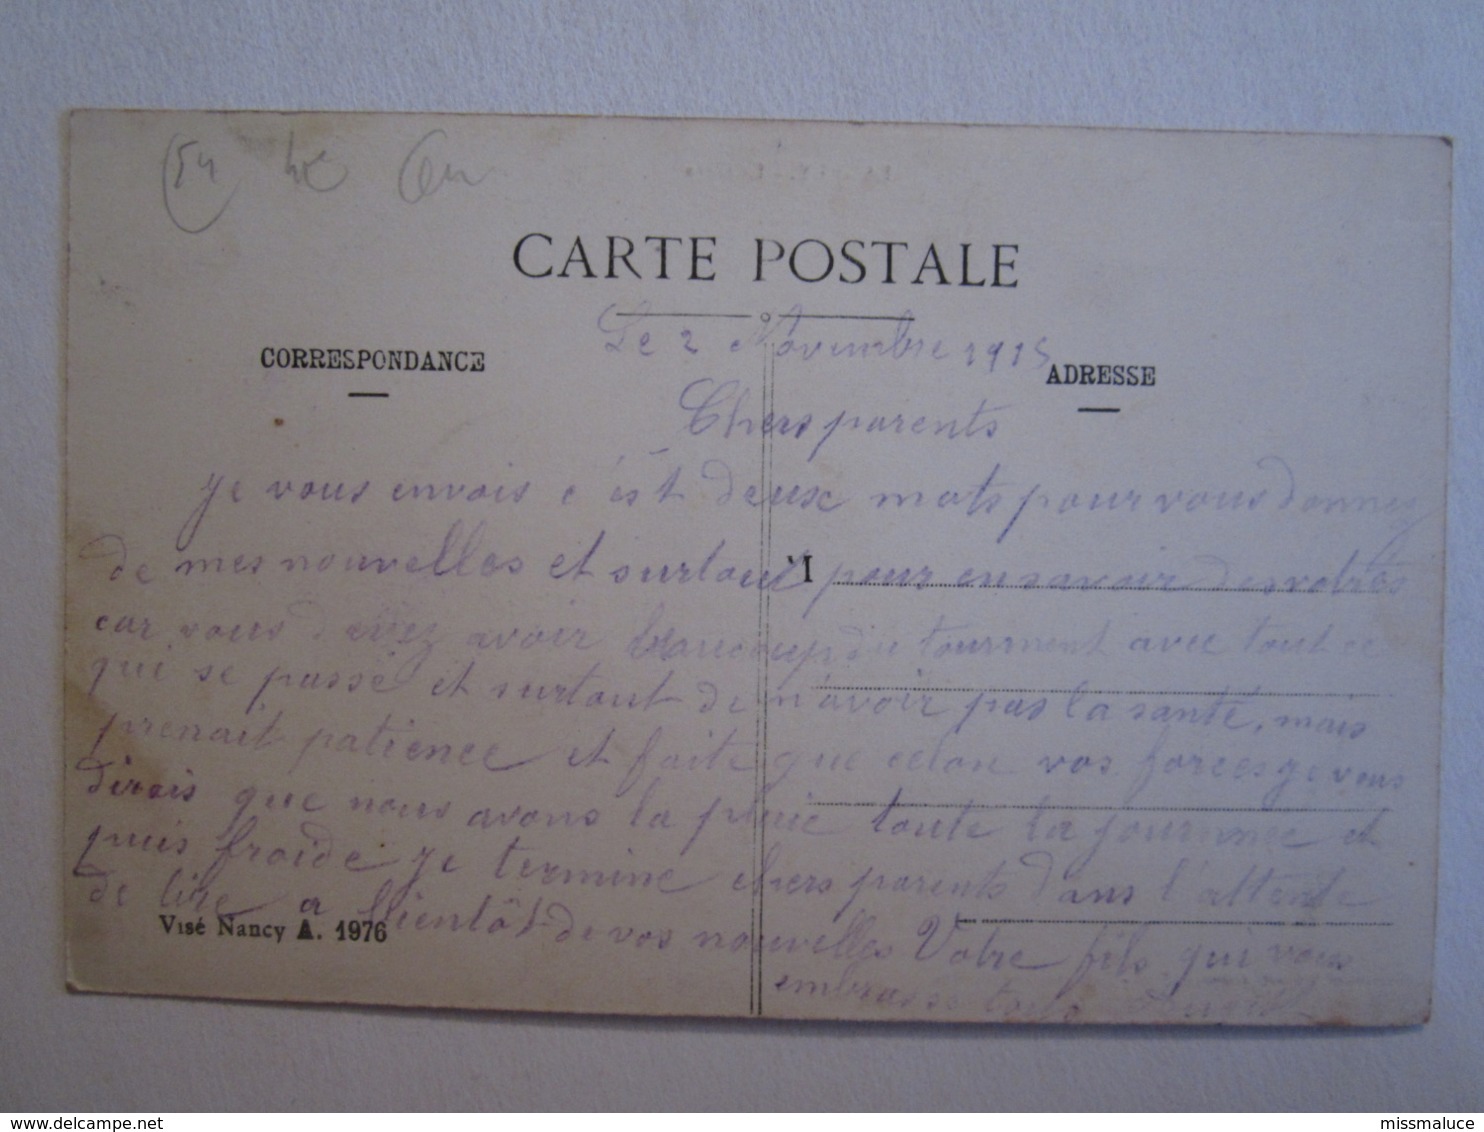 54
CARTE POSTALE
Le 2 Novembre 1915
CORRESPONDANCE
ADRESSE
Chers parents
je vous envois c'est deux mots pour vous donnez
de mes nouvelles et surtout pour en savoir des votres
M
car vous devez avoir beaucoup du tourment avec tout ce
qui se passe et surtout de n'avoir pas la santé, mais
prenait patience et faite que celon vos forces je vous
dirais que nous avons la pluie toute la journnee et
puis froide je termine chers parents dans l'attente
de lire a bientôt de vos nouvelles Votre fils qui vous
embrasse tous
Visé Nancy A. 1976
delcampe.net
missmaluce